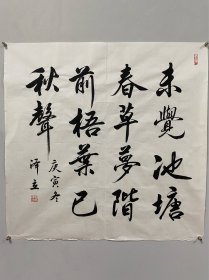 未覺池塘
春草夢階
前梧葉已
秋聲
庚寅冬
泽立